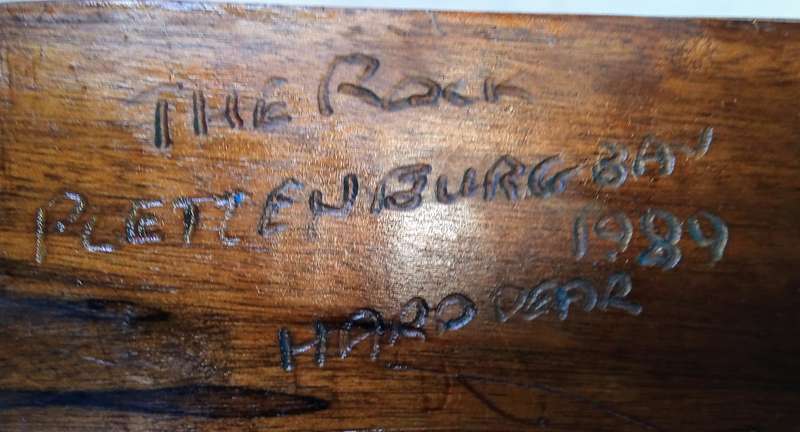 THE ROCK
PLETTENBURG BAY
1989
HARD PEAR